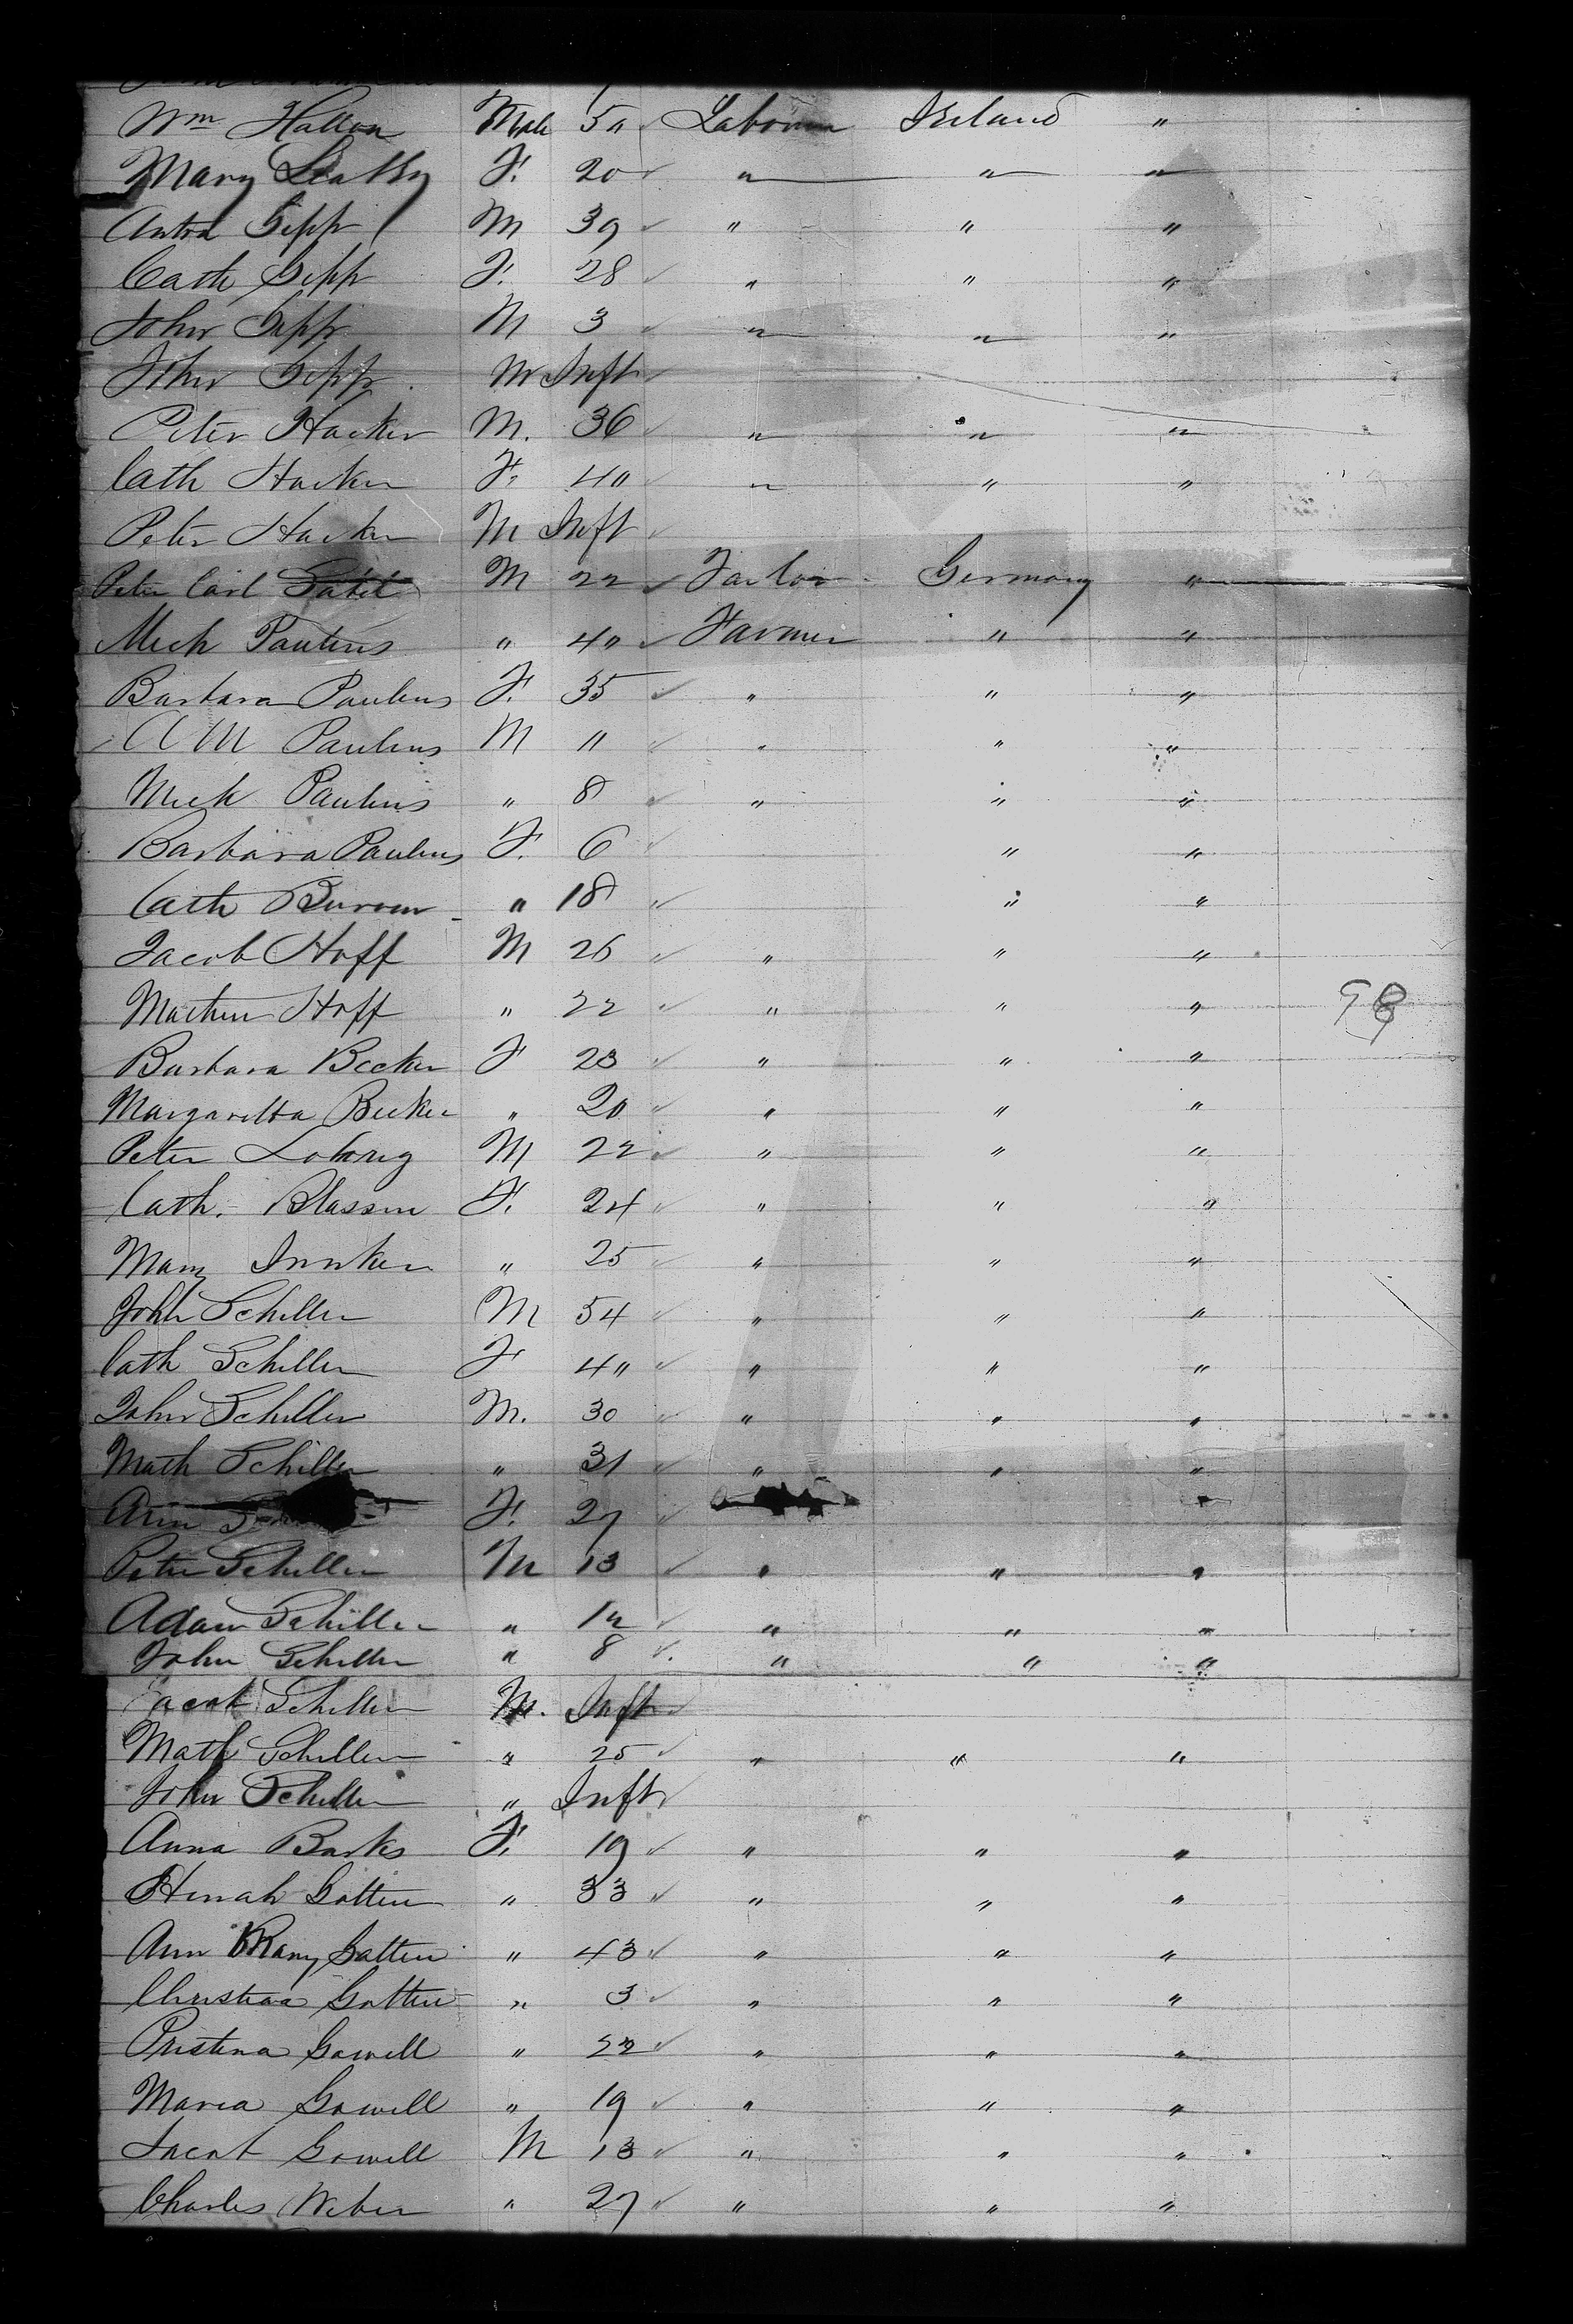 Wm Hallon Male 50 ✓ Labourer Ireland "
Mary Leathy F. 20 ✓ " " "
Anton Gipp M 39 ✓ " " "
Cath Gipp F. 28 ✓ " " "
John Gipp M 3 ✓ " " "
John Gipp M Inft ✓
Peter Hacker M. 36 ✓ " " "
Cath Hacker F. 40 ✓ " " "
Peter Hacker M Inft ✓
Peter Carl M 22 ✓ Tailor Germany "
Mich Paulins " 40 ✓ Farmer " "
Barbara Paulins F. 35 ✓ " " "
A M Paulins M 11 ✓ " " "
Mich Paulins " 8 ✓ " " "
Barbara Paulins F. 6 ✓ " "
Cath " 18 ✓ " "
Jacob Hoff M 26 ✓ " " "
Hoff " 22 ✓ " " " 98
Barbara Becker F 23 ✓ " " "
Margaretta Becker " 20 ✓ " " "
Peter M 22 ✓ " " "
Cath. Blassen F. 24 ✓ " " "
Mary " 25 ✓ " " "
John Schiller M 54 ✓ " " "
Cath Schiller F 40 ✓ " " "
John Schiller M. 30 ✓ " " "
Math Schiller " 31 ✓ " " "
Ann F. 27 ✓ "
Peter Schiller M 13 ✓ " " "
Adam Schiller " 10 ✓ " " "
John Schiller " 8 ✓ " " "
Jacob Schiller M. Inft ✓
Math Schiller " 25 ✓ " " "
John Schiller " Inft ✓
Anna Barks F. 19 ✓ " " "
Hinah Gotten " 33 ✓ " " "
Ann Mary Gotten " 43 ✓ " " "
Christina Gotten " 3 ✓ " " "
Pristena Gowell " 22 ✓ " " "
Maria Gowell " 19 ✓ " " "
Jacob Gowell M 13 ✓ " " "
Charles Weber " 27 ✓ " " "